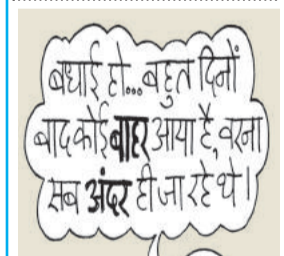 बधाई हो...बहुत दिनों
बाद कोई बाहर आया है, वरना
सब अंदर ही जा रहे थे।